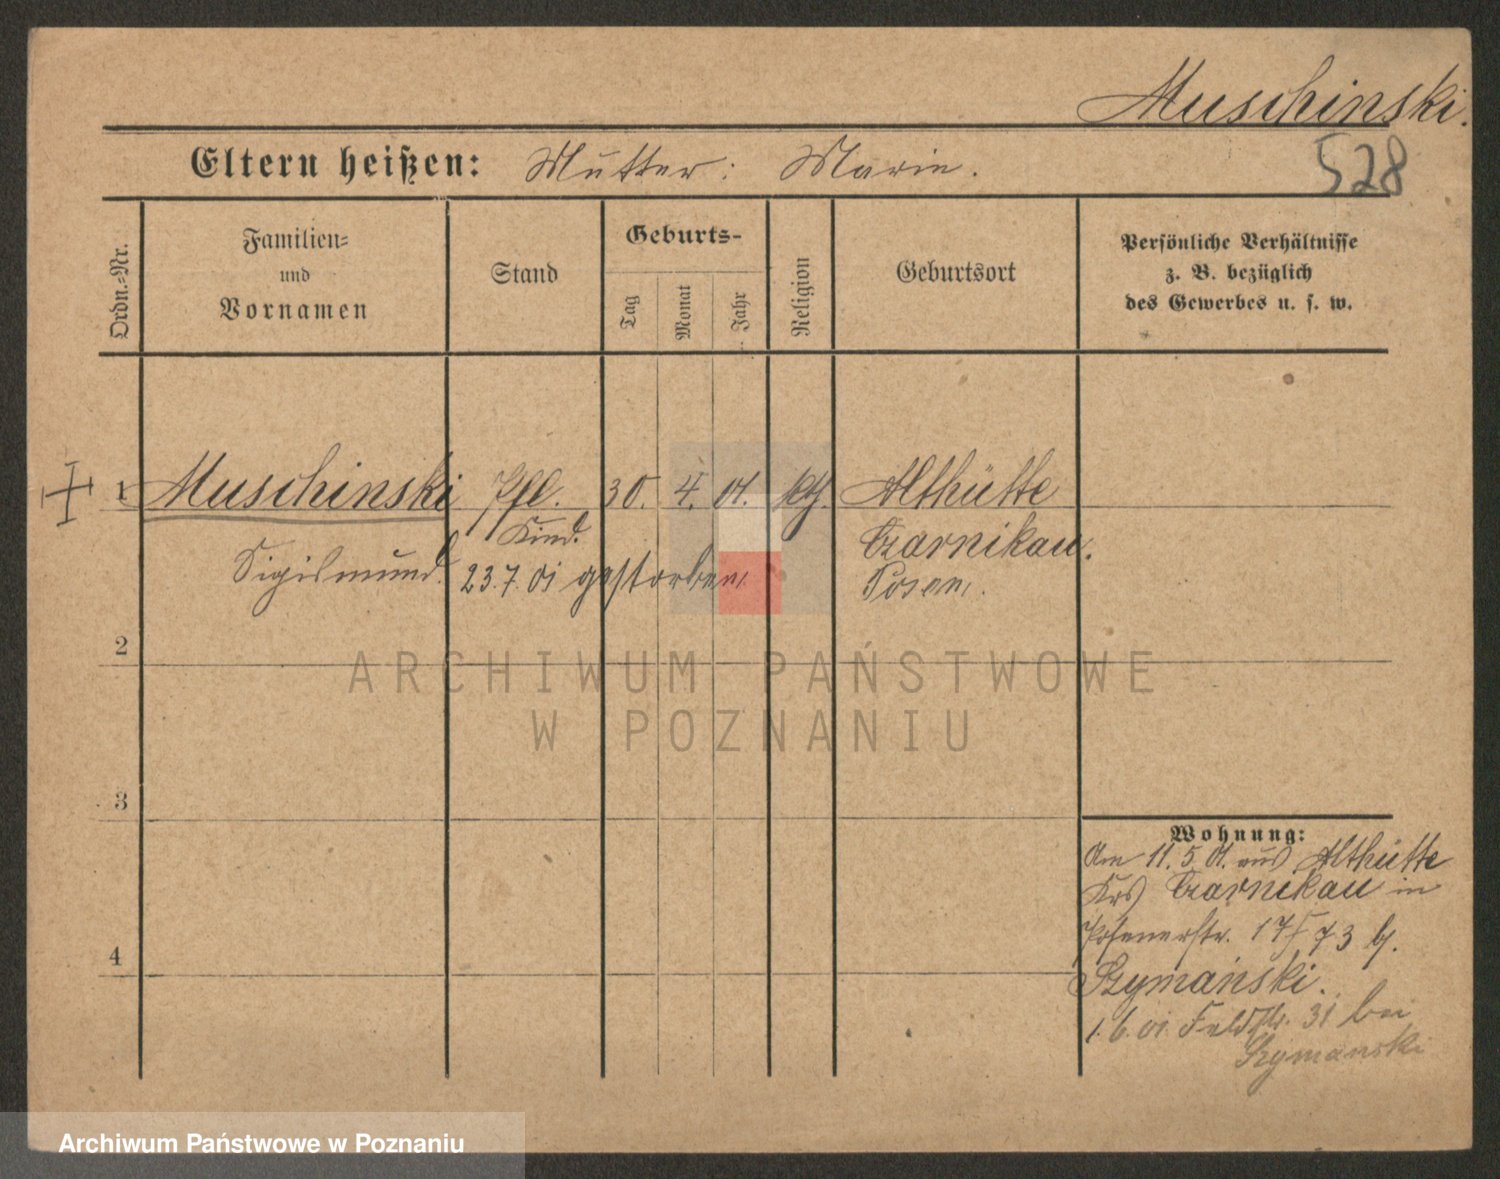 Muschinski.
528
Eltern heißen: Mutter: Marie.
Ordn.-Nr.
Familien-
und
Vornamen
Stand
Geburts-
Tag
Monat
Jahr
Religion
Geburtsort
Persönliche Verhältnisse
z. B. bezüglich
des Gewerbes u. s. w.
1 Muschinski Pfl. 30. 4. 01. kth. Althütte
Kind.
Czarnikau.
Sigismund. 23.7.01 gestorben.
Posen.
2
ARCHIWUM PAŃSTWOWE
W POZNANIU
3
Wohnung:
Am 11.5.01. aus Althütte
Krs Czarnikau in
Posenerstr. 73 b.
Szymański.
1.6.01. Feldstr. 31 bei
Szymanski
4
Archiwum Państwowe w Poznaniu